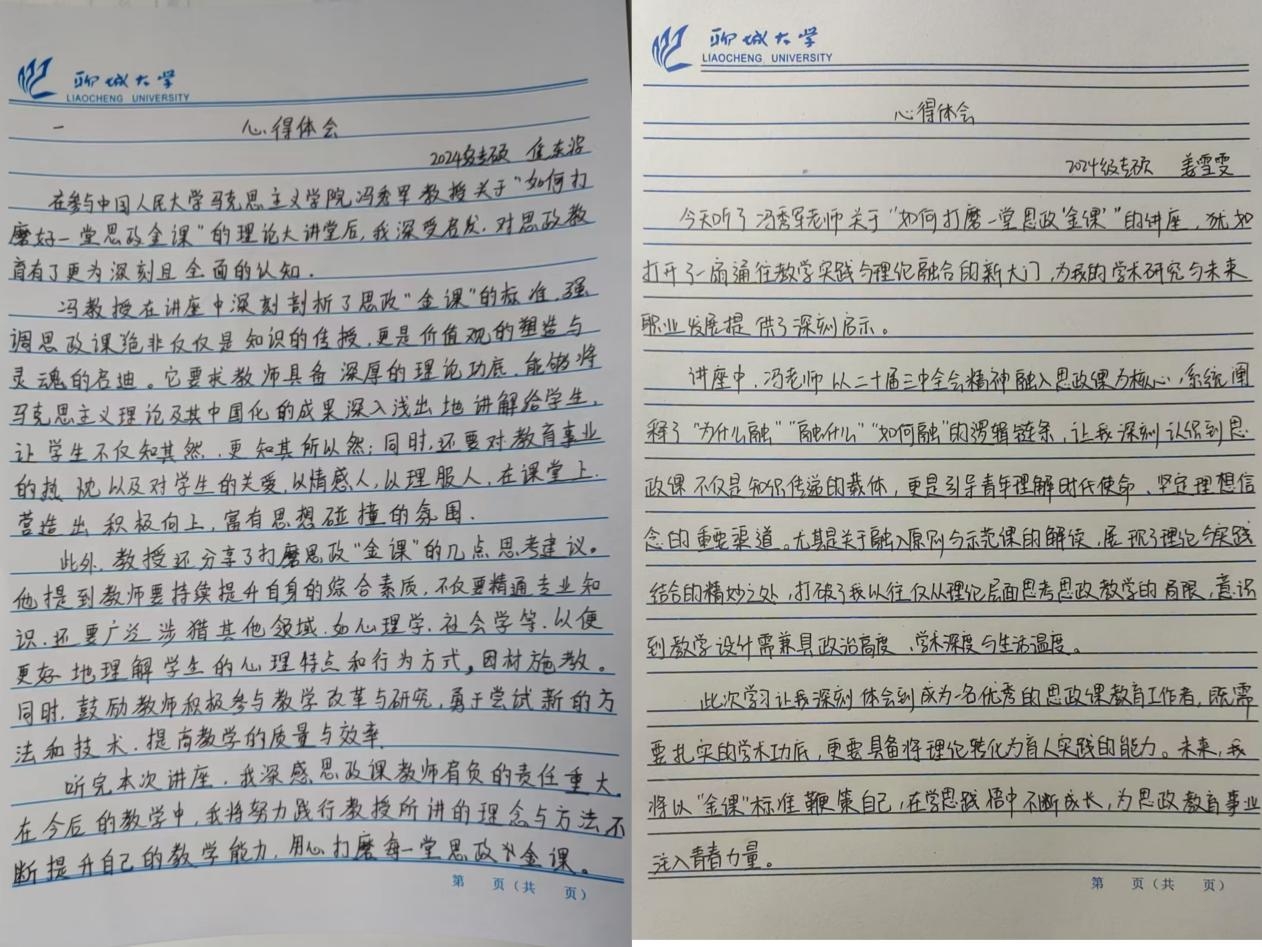 聊城大学
LIAOCHENG UNIVERSITY
心得体会
2024级专硕 焦东
在参与中国人民大学马克思主义学院冯秀军教授关于“如何打
磨好一堂思政金课”的理论大讲堂后，我深受启发，对思政教
育有了更为深刻且全面的认知．
冯教授在讲座中深刻剖析了思政“金课”的标准，强
调思政课绝非仅仅是知识的传授，更是价值观的塑造与
灵魂的启迪。它要求教师具备深厚的理论功底，能够将
马克思主义理论及其中国化的成果深入浅出地讲解给学生，
让学生不仅知其然，更知其所以然；同时，还要对教育事业
的热忱以及对学生的关爱，以情感人，以理服人，在课堂上
营造出积极向上，富有思想碰撞的氛围．
此外，教授还分享了打磨思政“金课”的几点思考建议。
他提到教师要持续提升自身的综合素质，不仅要精通专业知
识，还要广泛涉猎其他领域，如心理学，社会学等，以便
更好地理解学生的心理特点和行为方式，因材施教。
同时，鼓励教师积极参与教学改革与研究，勇于尝试新的方
法和技术，提高教学的质量与效率．
听完本次讲座，我深感思政课教师肩负的责任重大．
在今后的教学中，我将努力践行教授所讲的理念与方法不
断提升自己的教学能力，用心打磨每一堂思政金课。
第 页（共 页）
聊城大学
LIAOCHENG UNIVERSITY
心得体会
2024级专硕 姜雪雯
今天听了冯秀军老师关于“如何打磨一堂思政‘金课’”的讲座，犹如
打开了一扇通往教学实践与理论融合的新大门，为我的学术研究与未来
职业发展提供了深刻启示。
讲座中，冯老师以二十届三中全会精神融入思政课为核心，系统阐
释了“为什么融”“融什么”“如何融”的逻辑链条，让我深刻认识到思
政课不仅是知识传递的载体，更是引导青年理解时代使命、坚定理想信
念的重要渠道。尤其是关于融入原则与示范课的解读，展现了理论与实践
结合的精妙之处，打破了我以往仅从理论层面思考思政教学的局限，意识
到教学设计需兼具政治高度、学术深度与生活温度。
此次学习让我深刻体会到成为一名优秀的思政课教育工作者，既需
要扎实的学术功底，更要具备将理论转化为育人实践的能力。未来，我
将以“金课”标准鞭策自己，在学思践悟中不断成长，为思政教育事业
注入青春力量。
第 页（共 页）